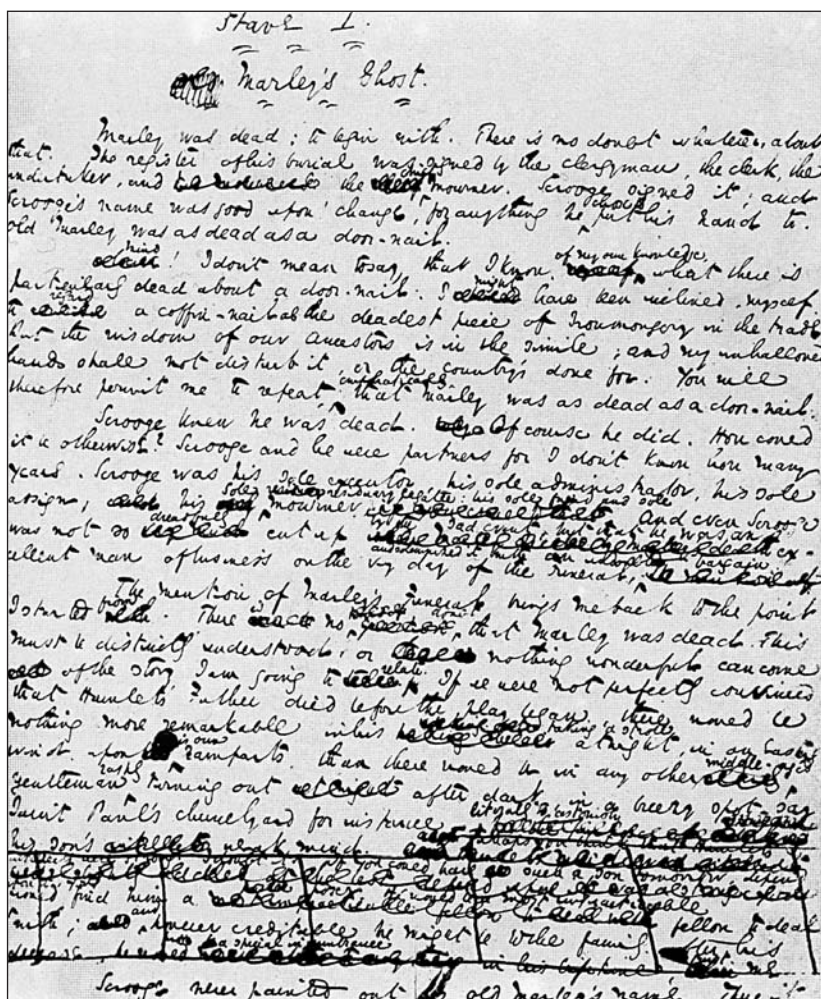 Stave I.
Marley's Ghost.
Marley was dead; to begin with. There is no doubt whatever, about
that. The register of his burial was signed by the clergyman, the clerk, the
undertaker, and the chief mourner. Scrooge signed it; and
Scrooge's name was good upon 'Change, for anything he chose to put his hand to.
Old Marley was as dead as a door-nail.
Mind! I don't mean to say, that I know, of my own knowledge, what there is
particularly dead about a door-nail. I might have been inclined, myself,
to regard a coffin-nail as the deadest piece of Ironmongery in the trade.
But the wisdom of our ancestors is in the simile; and my unhallowed
hands shall not disturb it, or the country's done for. You will
therefore permit me to repeat, emphatically, that Marley was as dead as a door-nail.
Scrooge knew he was dead. Of course he did. How could
it be otherwise? Scrooge and he were partners for I don't know how many
years. Scrooge was his sole executor, his sole administrator, his sole
assign, his sole residuary legatee: his sole friend and sole mourner. And even Scrooge
was not so dreadfully cut up by the sad event, but that he was an ex-
cellent man of business on the very day of the funeral, and solemnized it with an undoubted bargain.
The mention of Marley's funeral brings me back to the point
I started from. There is no doubt, that Marley was dead. This
must be distinctly understood, or nothing wonderful can come
of the story I am going to relate. If we were not perfectly convinced
that Hamlet's Father died before the play began, there would be
nothing more remarkable in his taking a stroll at night, in an easterly
wind, upon his own ramparts, than there would be in any other middle-aged
gentleman rashly turning out after dark in a breezy spot—say
Saint Paul's churchyard for instance literally to astonish
his son's weak mind.
such a son tomorrow
would find him a fellow to deal
with; and however creditable he might be to the family after his
Scrooge never painted out old Marley's name.